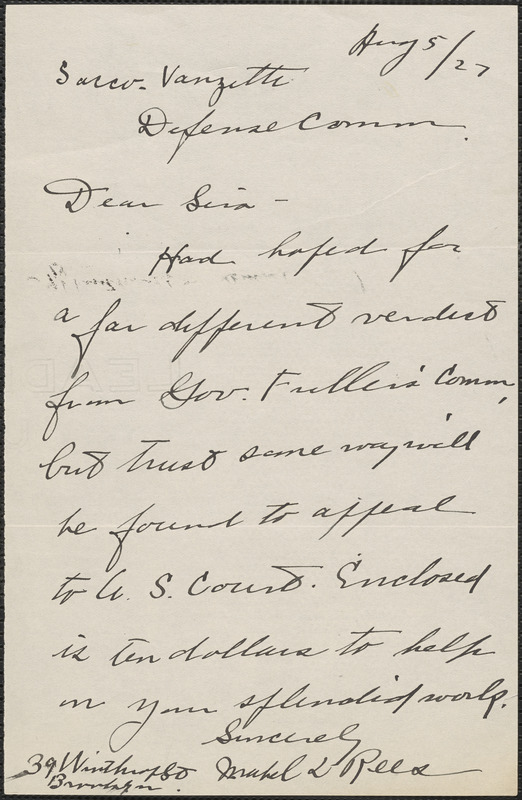 Aug 5/27
Sacco-Vanzetti
Defense Comm.
Dear Sirs -
Had hoped for
a far different verdict
from Gov. Fuller's Comm,
but trust some way will
be found to appeal
to U. S. Court. Enclosed
is ten dollars to help
in your splendid work.
Sincerely
Mabel L Rees
39 Winthrop St
Brooklyn.
LEAD